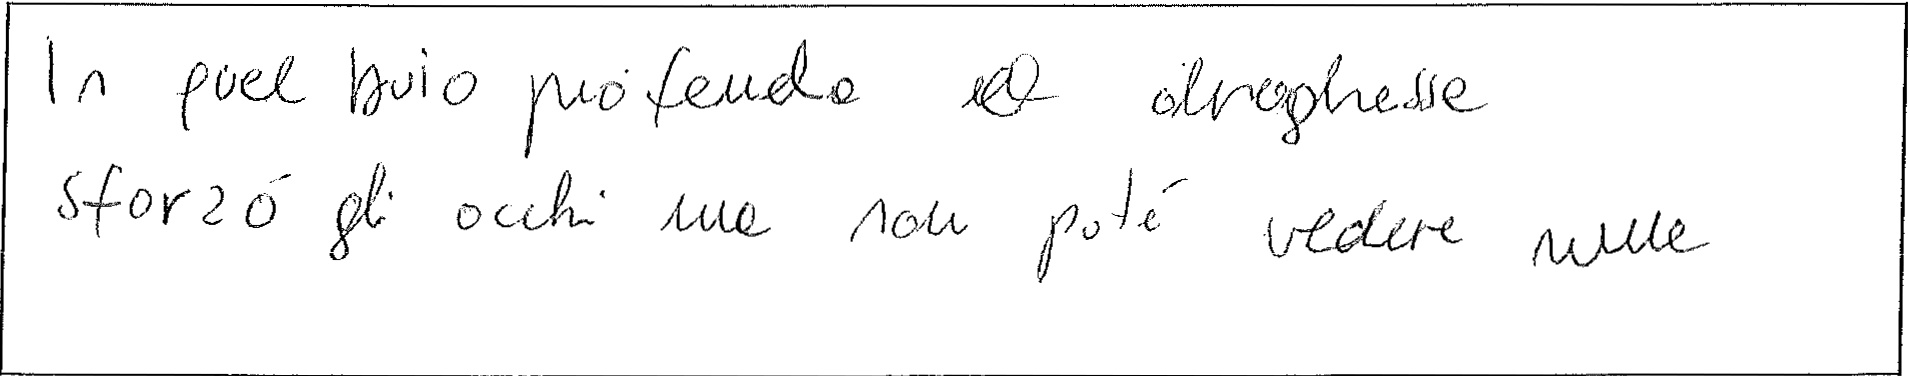 In quel buio profondo draghessa
sforzó gli occhi ma non poté vedere nulla